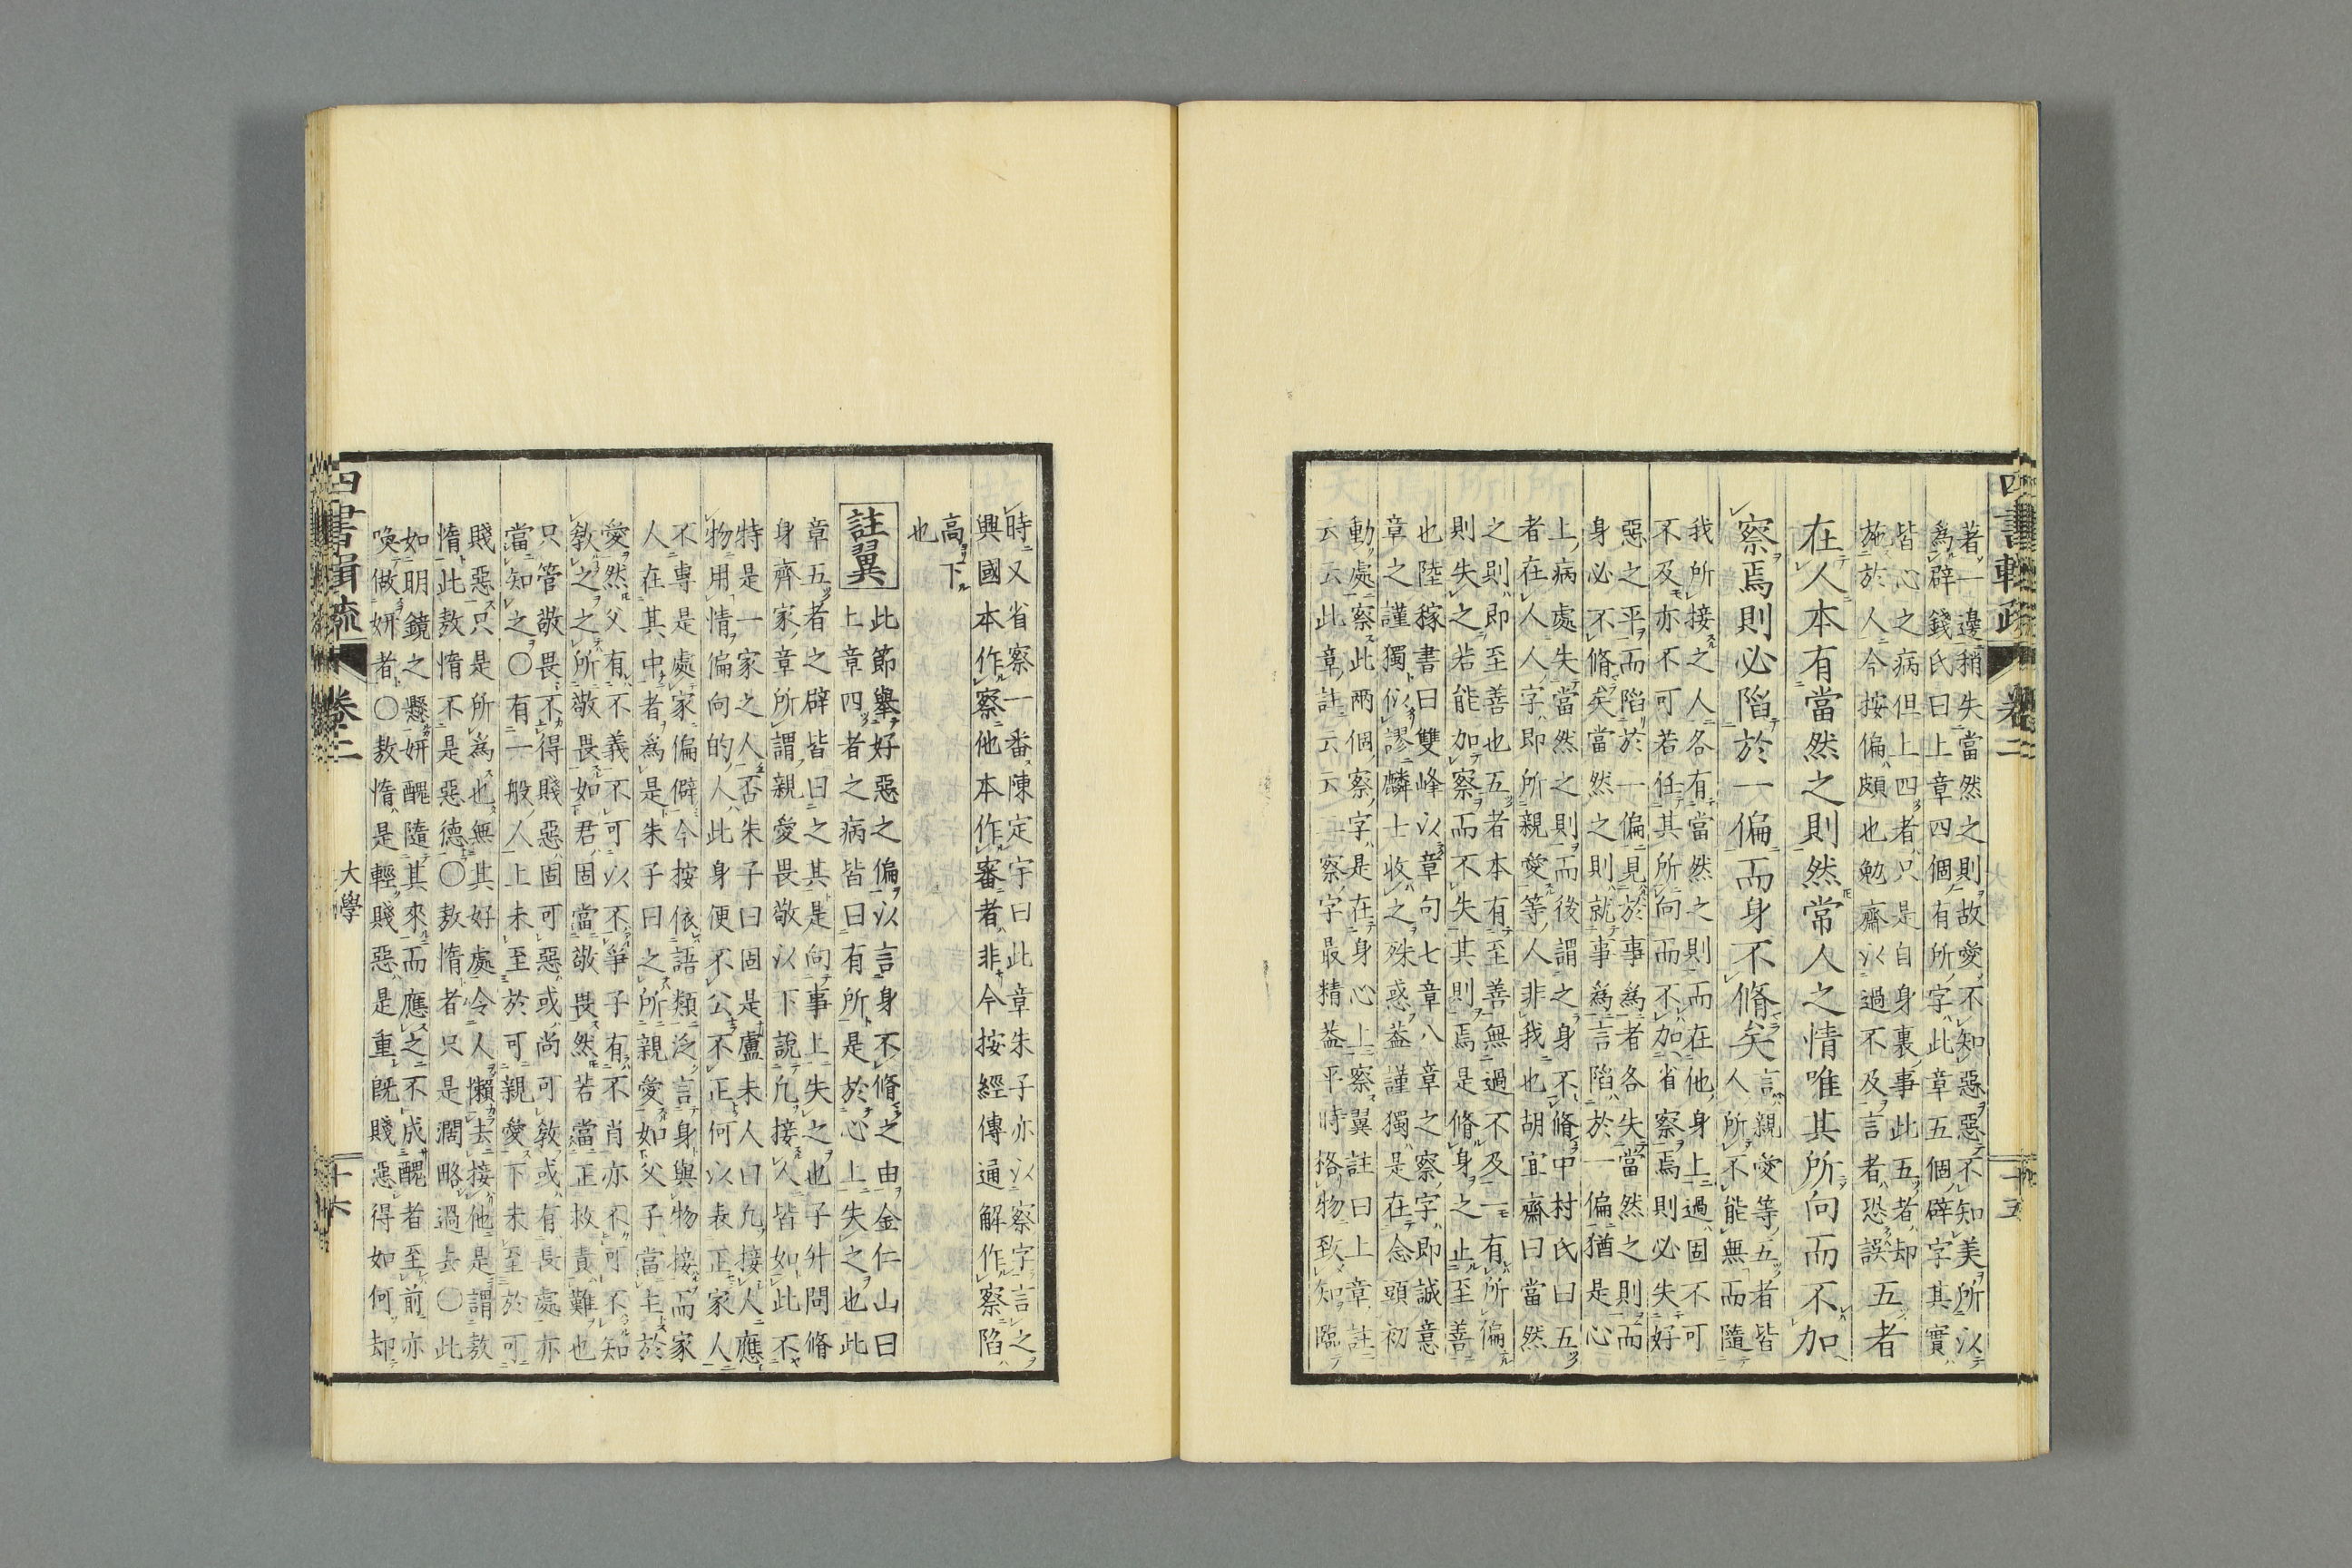 四書輯疏 卷二 十五
著一邊稍失當然之則故愛不知惡惡不知美所以
為辟錢氏曰上章四個有所字此章五個辟字其實
皆心之病但上四者只是自身裏事此五者却
施於人今按偏頗也勉齋以過不及言者恐誤
五者
在人本有當然之則然常人之情唯其所向而不加
察焉則必陷於一偏而身不脩矣
言親愛等五者皆
人所不能無而隨
我所接之人各有當然之則而在他身上過固不可
不及亦不可若任其所向而不加省察焉則必失好
惡之平而陷於一偏見於事為者各失當然之則而
身必不脩矣當然之則就事為言陷於一偏猶是心
上病處失當然之則而後謂之身不脩中村氏曰五
者在人人字即所親愛等人非我也胡宜齋曰當然
之則即至善也五者本有至善無過不及一有所偏
則失之若能加察而不失其則焉是脩身之止至善
也陸稼書曰雙峰以章句七章八章之察字即誠意
章之謹獨似謬麟士收之殊惑益謹獨是在念頭初
動處察此兩個察字是在身心上察翼註曰上章註
云云此章註云云二察字最精益平時挌物致知臨
時又省察一番陳定宇曰此章朱子亦以察字言之
興國本作察他本作審者非今按經傳通解作察陷
高下
也
註翼
此節舉好惡之偏以言身不脩之由金仁山曰
上章四者之病皆曰有所是於心上失之也此
章五者之辟皆曰之其是向事上失之也子升問脩
身齊家章所謂親愛畏敬以下說凡接人皆如此不
特是一家之人否朱子曰固是盧未人曰凡接人應
物用情偏向的人此身便不公不正何以表正家人
不專是處家偏僻今按依語類泛言身與物接而家
人在其中者為是朱子曰之所親愛如父子當主於
愛然父有不義不可以不爭子有不肖亦不可不知
敎之之所敬畏如君固當敬畏然若當正救責難也
只管敬畏不得賤惡固可惡或尚可敎或有長處亦
當知之〇有一般人上未至於可親愛下未至於可
賤惡只是所為也無其好處令人懶去接他是謂敖
惰此敖惰不是惡德〇敖惰者只是濶略過去〇此
如明鏡之懸妍醜隨其來而應之不成醜者至前亦
喚做妍者〇敖惰是輕賤惡是重既賤惡得如何却
四書輯疏 卷二 大學 十六